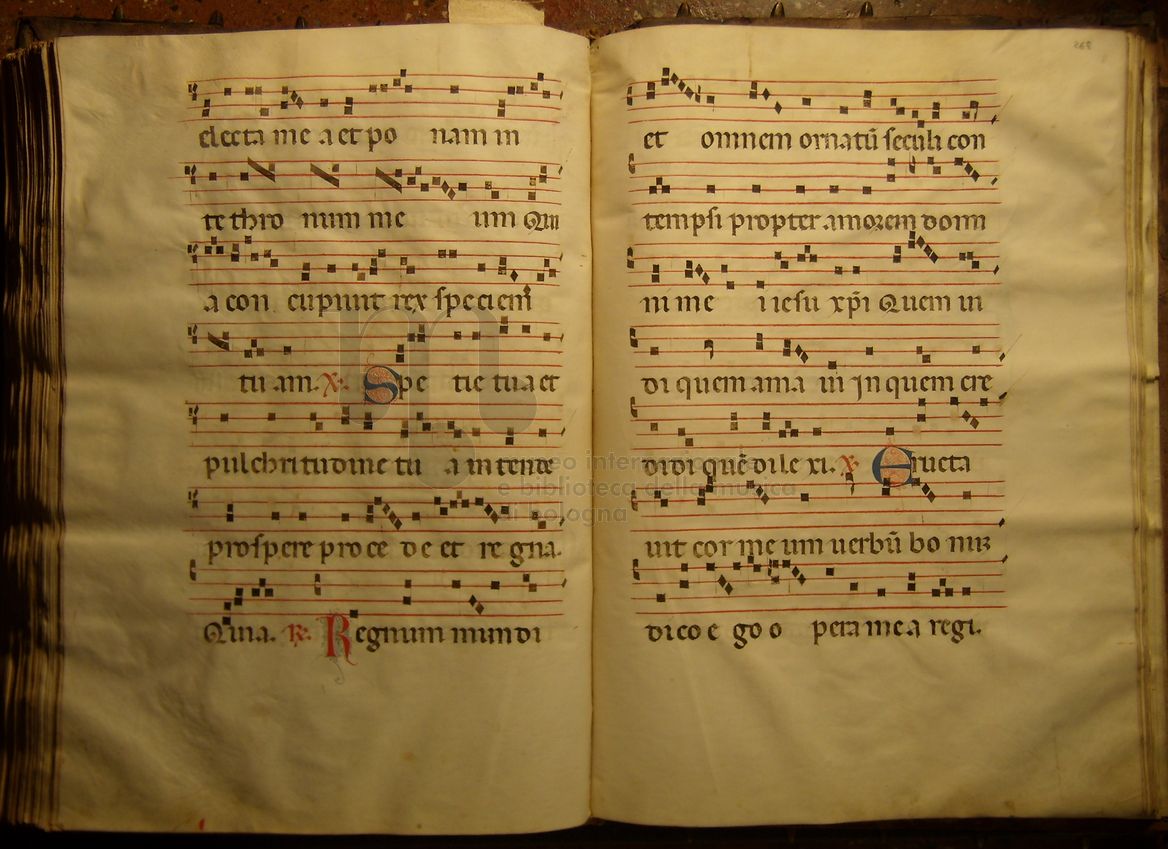 electa me a et po nam in
te thro num me um Qui
a con cupiuit rex speciem
tu am. V. Spe tie tua et
pulchritudine tu a intende
prospere proce de et re gna.
Quia. R. Regnum mundi
268
et omnem ornatū seculi con
tempsi propter amorem domi
ni me i iesu xp̄i Quem ui
di quem ama ui In quem cre
didi quē dile xi. V. Eructa
uit cor me um uerbū bo num
dico e go o pera me a regi.
museo internazionale
e biblioteca della musica
di bologna